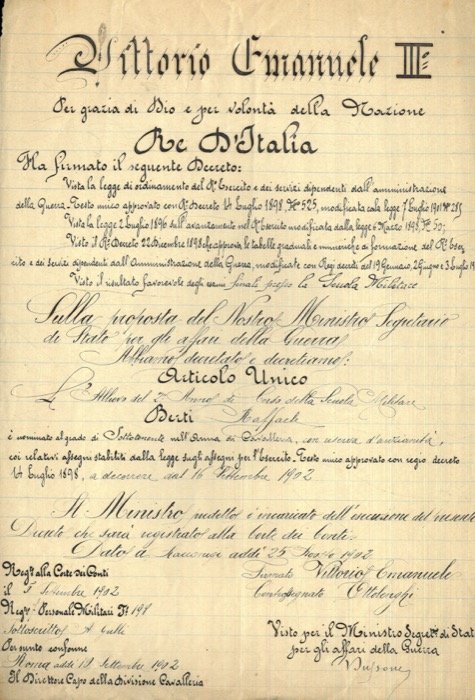 Vittorio Emanuele III°
Per grazia di Dio e per volontà della Nazione
Re D'Italia
Ha firmato il seguente Decreto:
Vista la legge di ordinamento del R° Esercito e dei servizi dipendenti dall'amministrazione
della Guerra-Testo unico approvato con R° Decreto 14 Luglio 1898 N° 525, modificata colla legge 7 Luglio 1901 N° 285
Vista la legge 2 Luglio 1896 sull'avanzamento nel R° Esercito modificata dalla legge 6 Marzo 1898 N° 50;
Visto il R° Decreto 22 Dicembre 1898 che approva le tabelle graduali e numeriche di formazione del R° Eser
cito e dei servizi dipendenti dall'Amministrazione della Guerra, modificate con Regi decreti del 19 Gennaio, 2 Giugno e 3 Luglio 19
Visto il risultato favorevole degli esami finali presso la Scuola Militare
Sulla proposta del Nostro Ministro Segretario
di Stato per gli affari della Guerra
Abbiamo decretato e decretiamo:
Articolo Unico
L'Allievo del 2° Anno di Corso della Scuola Militare
Berti Raffaele
è nominato al grado di Sottotenente nell'Arma di Cavalleria, con riserva d'anzianità,
coi relativi assegni stabiliti dalla legge sugli assegni per l'Esercito. Testo unico approvato con regio decreto
14 Luglio 1898, a decorrere dal 16 Settembre 1902
Il Ministro predetto è incaricato dell'esecuzione del presente
Decreto che sarà registrato alla Corte dei Conti.
Dato a Racconigi addì 25 Agosto 1902
Firmato Vittorio Emanuele
Controsegnato Ottolenghi
Reg° alla Corte dei Conti
il 5 Settembre 1902
Reg° Personale Militari F° 198
Sottoscritto A
Per sunto conforme
Roma addì 12 Settembre 1902
Il Direttore Capo della Divisione Cavalleria
Visto per il Ministro Segret° di Stat
per gli affari della Guerra